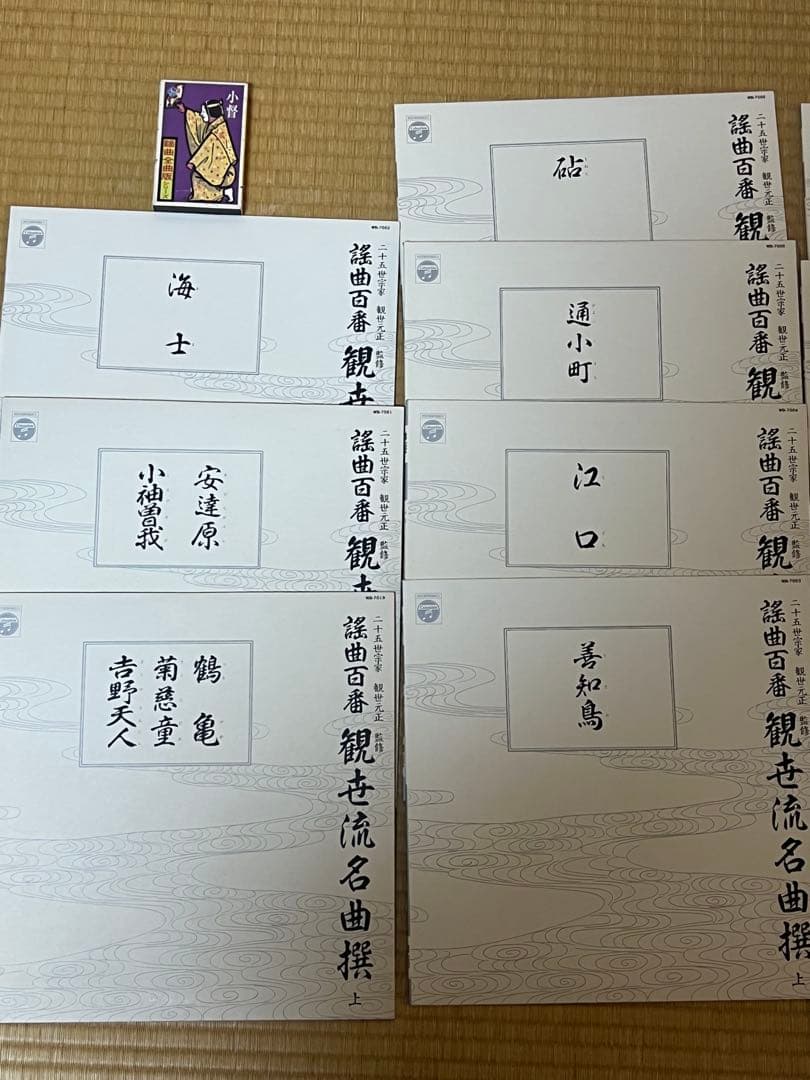 小督
謡曲全曲版
海士
二十五世宗家 観世元正 監修
謡曲百番 観世
安達原
小袖曽我
二十五世宗家 観世元正 監修
謡曲百番 観世
WB-7019
鶴亀
菊慈童
吉野天人
二十五世宗家 観世元正 監修
謡曲百番 観世流名曲撰 上
砧
二十五世宗家 観世元正 監修
謡曲百番 観
通小町
二十五世宗家 観世元正 監修
謡曲百番 観
江口
二十五世宗家 観世元正 監修
謡曲百番 観
善知鳥
二十五世宗家 観世元正 監修
謡曲百番 観世流名曲撰 上